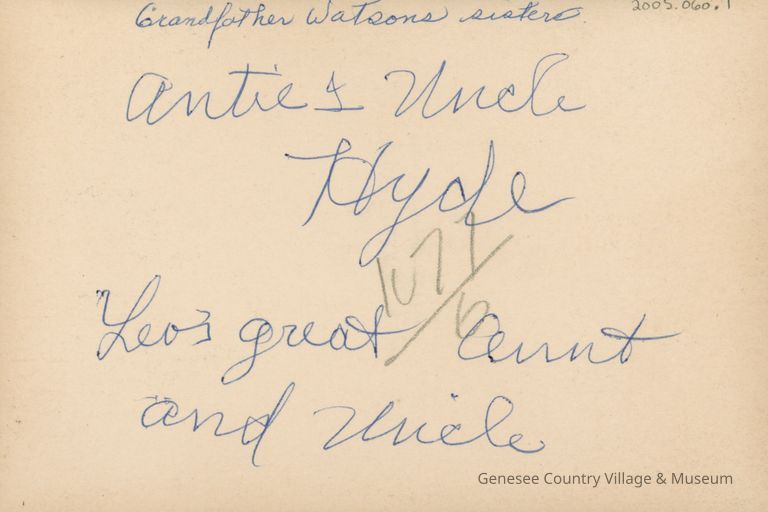 Grandfather Watsons sisters. 2005.060.1
Antie & Uncle
Hyde
1077/6
Leo's great Aunt
and Uncle
Genesee Country Village & Museum